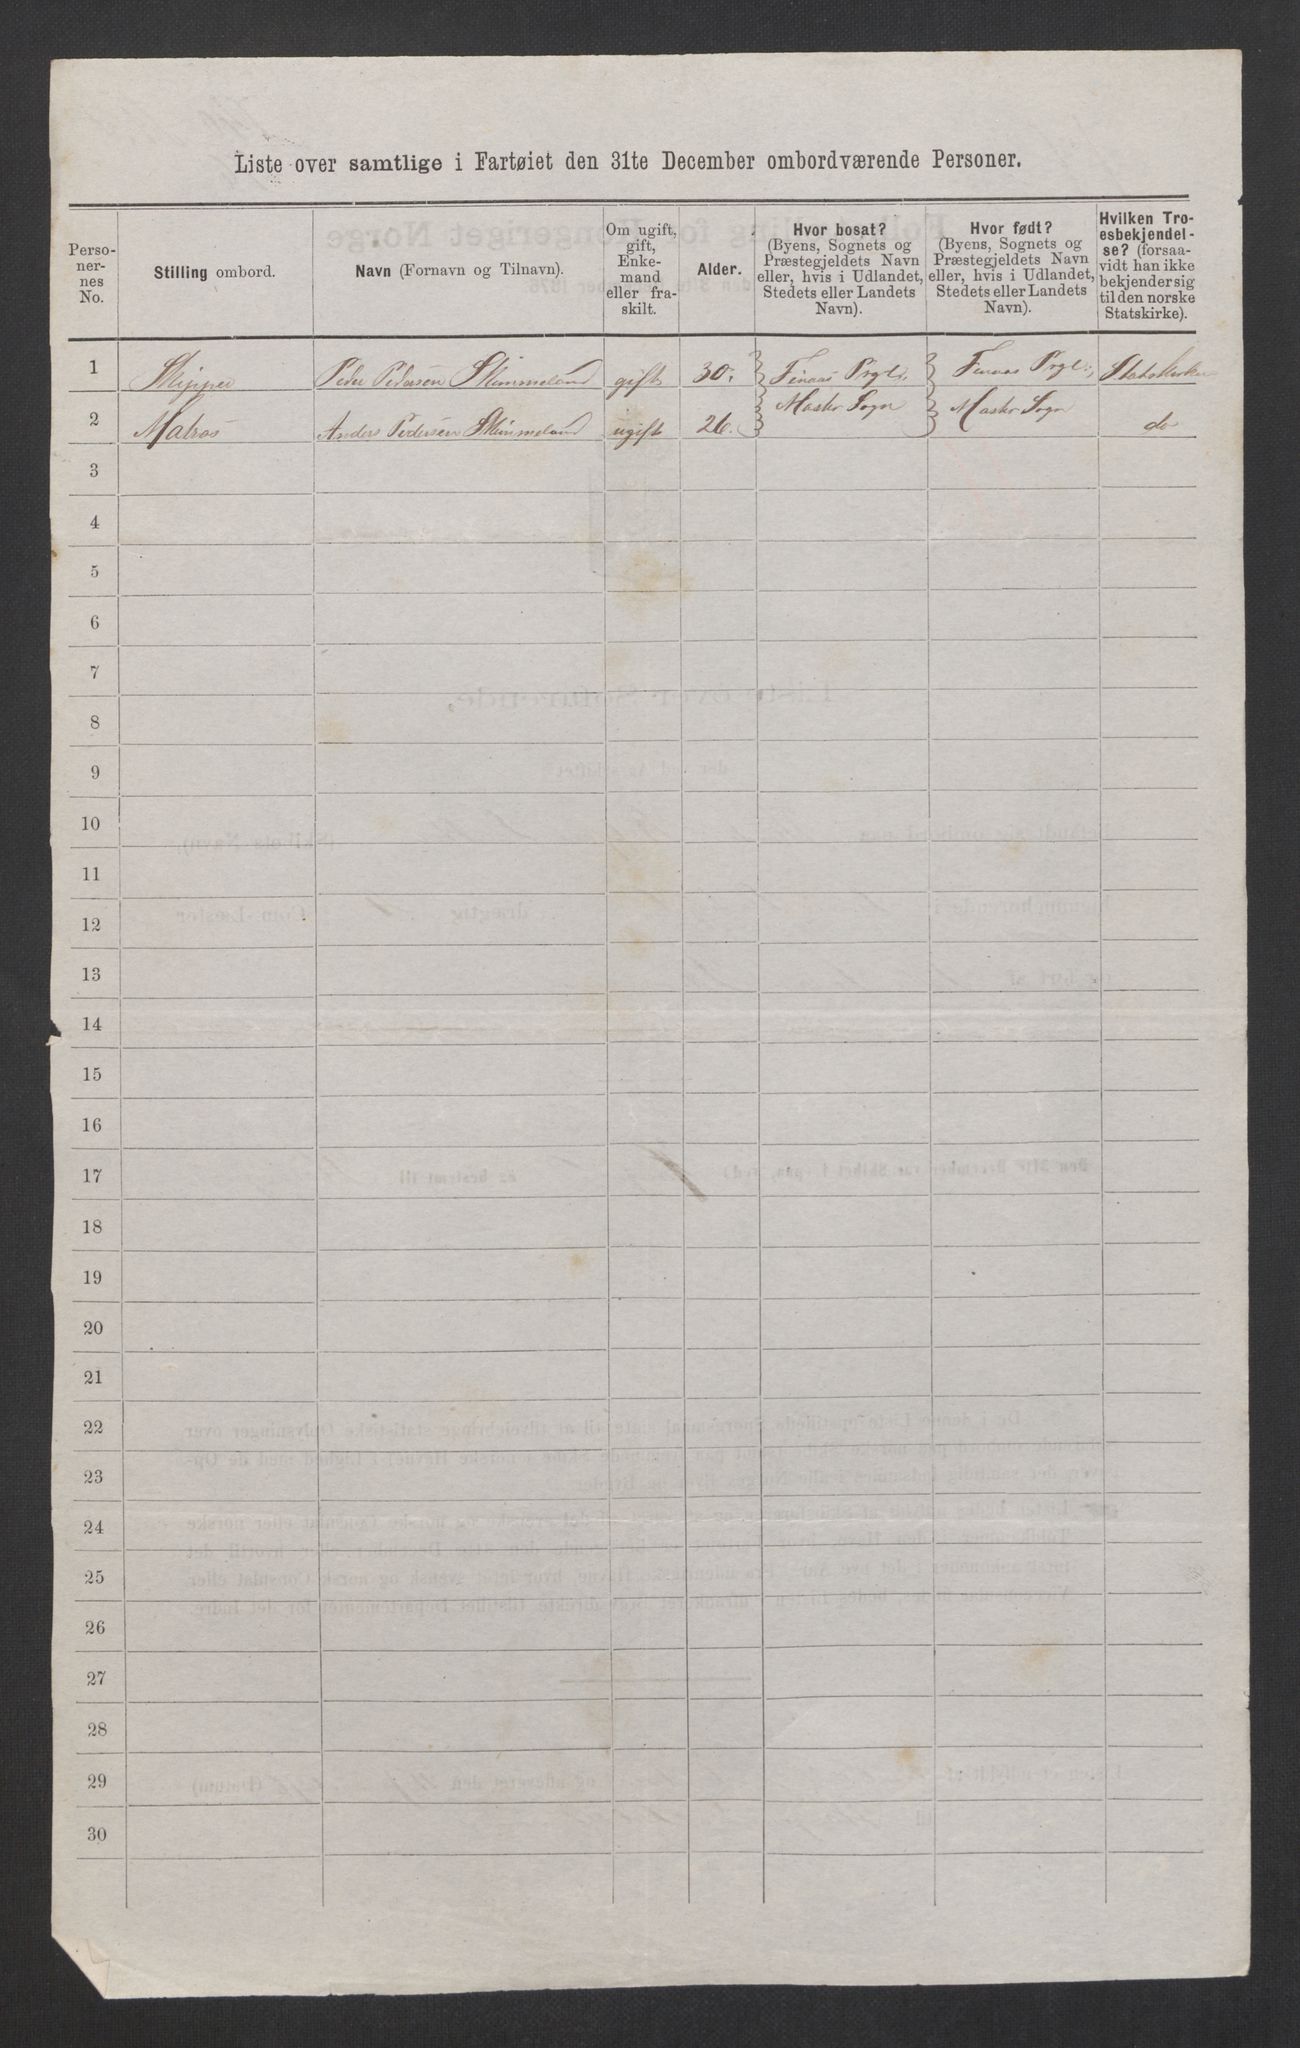 Liste over samtlige i Fartøiet den 31te December ombordværende Personer.
Personernes No.
Stilling ombord.
Navn (Fornavn og Tilnavn).
Om ugift, gift, Enkemand eller fraskilt.
Alder.
Hvor bosat? (Byens, Sognets og Præstegjeldets Navn eller, hvis i Udlandet, Stedets eller Landets Navn).
Hvor født? (Byens, Sognets og Præstegjeldets Navn eller, hvis i Udlandet, Stedets eller Landets Navn).
Hvilken Troesbekjendelse? (forsaavidt han ikke bekjender sig til den norske Statskirke).
1 Skipper Peder Pedersen Skimmeland gift 30. Finaas Prgl. Finaas Prgl. Statskirken
Moster Sogn Moster Sogn
2 Matros Anders Pedersen Skimmeland ugift 26. do
3
4
5
6
7
8
9
10
11
12
13
14
15
16
17
18
19
20
21
22
23
24
25
26
27
28
29
30